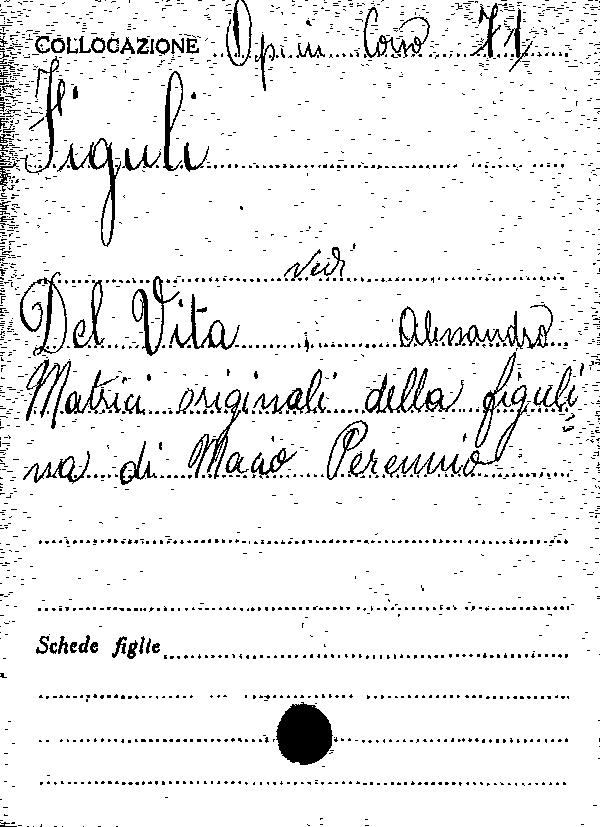 COLLOCAZIONE Op in Corso 71
Figuli
vedi
Del Vita, Alessandro
Matrici originali della figuli
na di Marco Perennio
Schede figlie